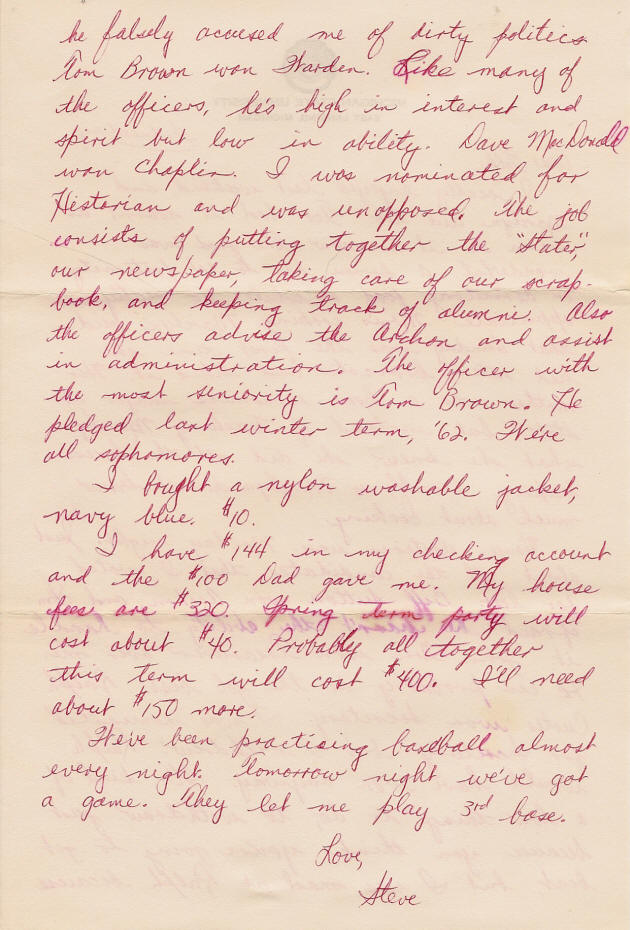 he falsely accused me of dirty politics
Tom Brown won Warden. Like many of
the officers, he's high in interest and
spirit but low in ability. Dave MacDonald
won Chaplin. I was nominated for
Historian and was unopposed. The job
consists of putting together the "Stater",
our newspaper, taking care of our scrap-
book, and keeping track of alumni. Also
the officers advise the Archon and assist
in administration. The officer with
the most seniority is Tom Brown. He
pledged last winter term, '62. We're
all sophomores.
I bought a nylon washable jacket,
navy blue. $10.
I have $144 in my checking account
and the $100 Dad gave me. My house
fees are $320. Spring term party will
cost about $40. Probably all together
this term will cost $400. I'll need
about $150 more.
We've been practising baseball almost
every night. Tomorrow night we've got
a game. They let me play 3rd base.
Love,
Steve